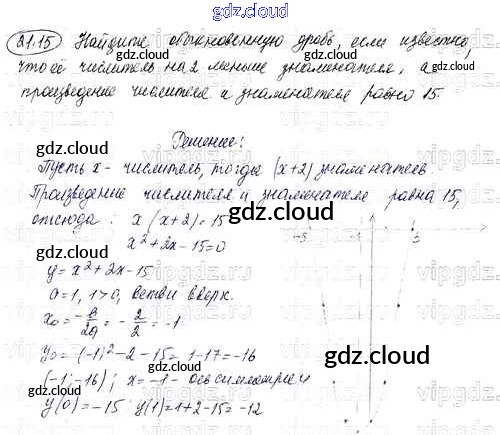 gdz.cloud
21.15 Найдите обыкновенную дробь, если известно,
что её числитель на 2 меньше знаменателя, а
произведение числителя и знаменателя равно 15.
Решение:
Пусть x - числитель, тогда (x+2) знаменателев
Произведение числителя и знаменателя равна 15,
отсюда: x(x+2)=15
x²+2x-15=0
y=x²+2x-15
a=1, 1>0, ветви вверх.
x₀=-в/2a=-2/2=-1
y₀=(-1)²-2-15=1-17=-16
(-1;-16); x=-1 - ось симметрии
y(0)=-15 y(1)=1+2-15=-12
-5 -1 3
gdz.cloud
gdz.cloud
gdz.cloud
gdz.cloud
gdz.cloud
gdz.cloud
gdz.cloud
gdz.cloud
gdz.cloud
gdz.cloud